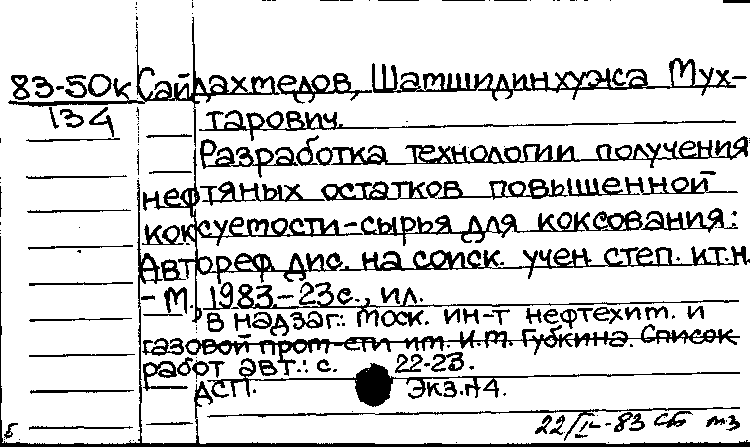 83-50к Сайдахмедов, Шамшидинхужа Мух-
134 тарович.
Разработка технологии получения
нефтяных остатков повышенной
коксуемости-сырья для коксования:
Автореф. дис. на соиск. учен. степ. к.т.н.
- М., 1983.-23с., ил.
В надзаг.: Моск. ин-т нефтехим. и
газовой пром-сти им. И.М. Губкина. Список
работ авт.: с. 22-23.
ДСП. Экз.№4.
Б 22/IV-83 СБ мз